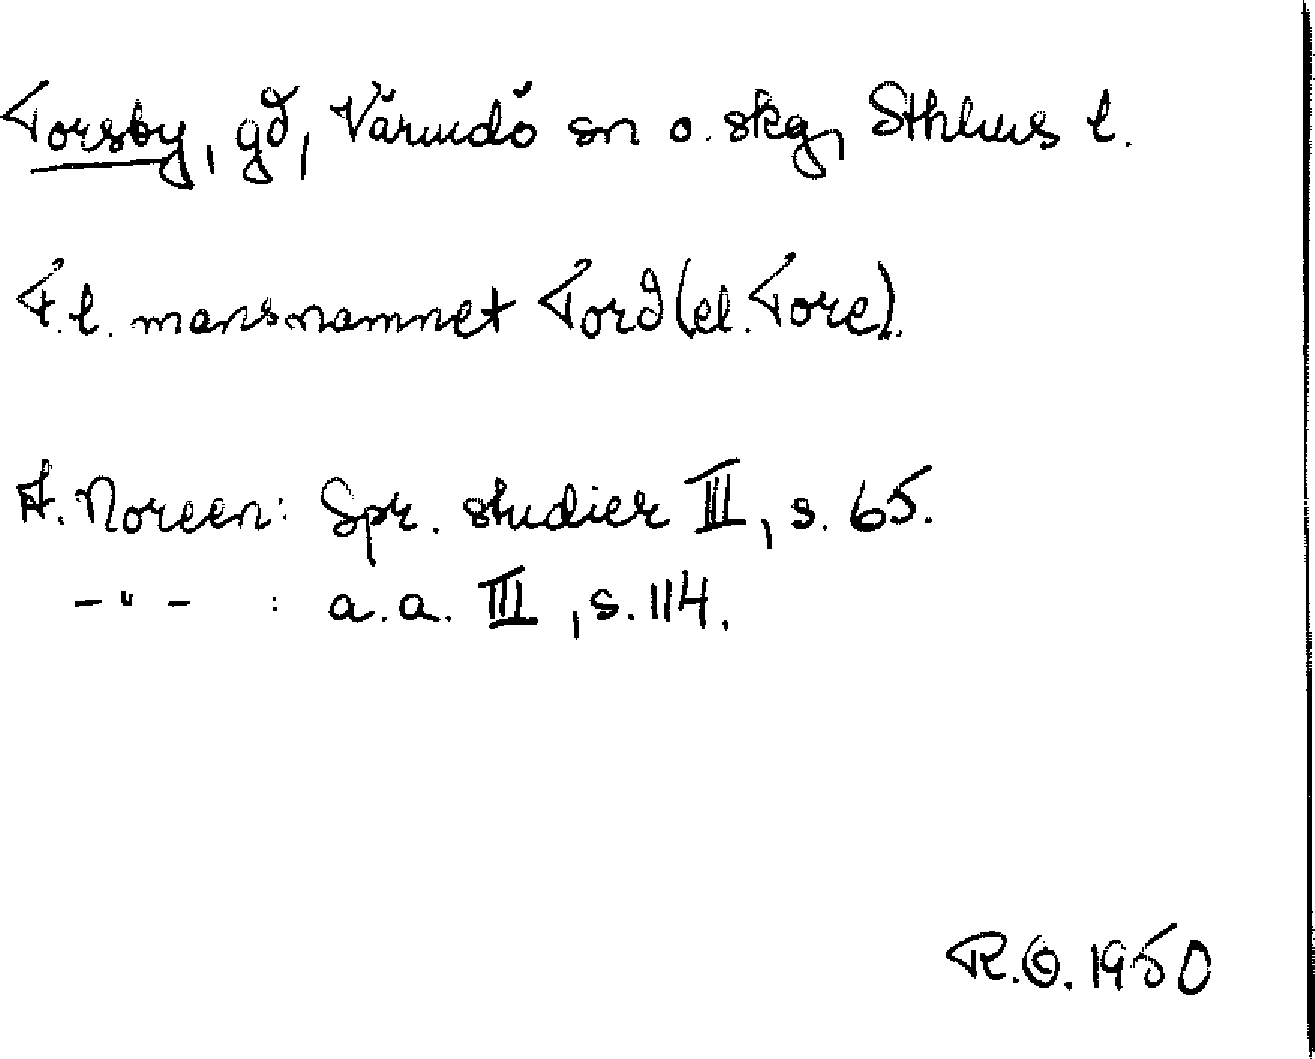 Torsby, gd, Värmdö sn o. skg, Sthlms l.
T.l. mansnamnet Tord (el. Tore).
A. Noreen: Spr. studier II, s. 65.
-"- : a.a. III, s. 114.
R.O. 1950